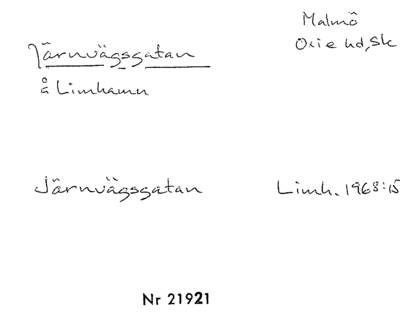 Järnvägsgatan
Malmö
Oxie hd, Sk
å Limhamn
Järnvägsgatan
Limh. 1968:15
Nr 21921